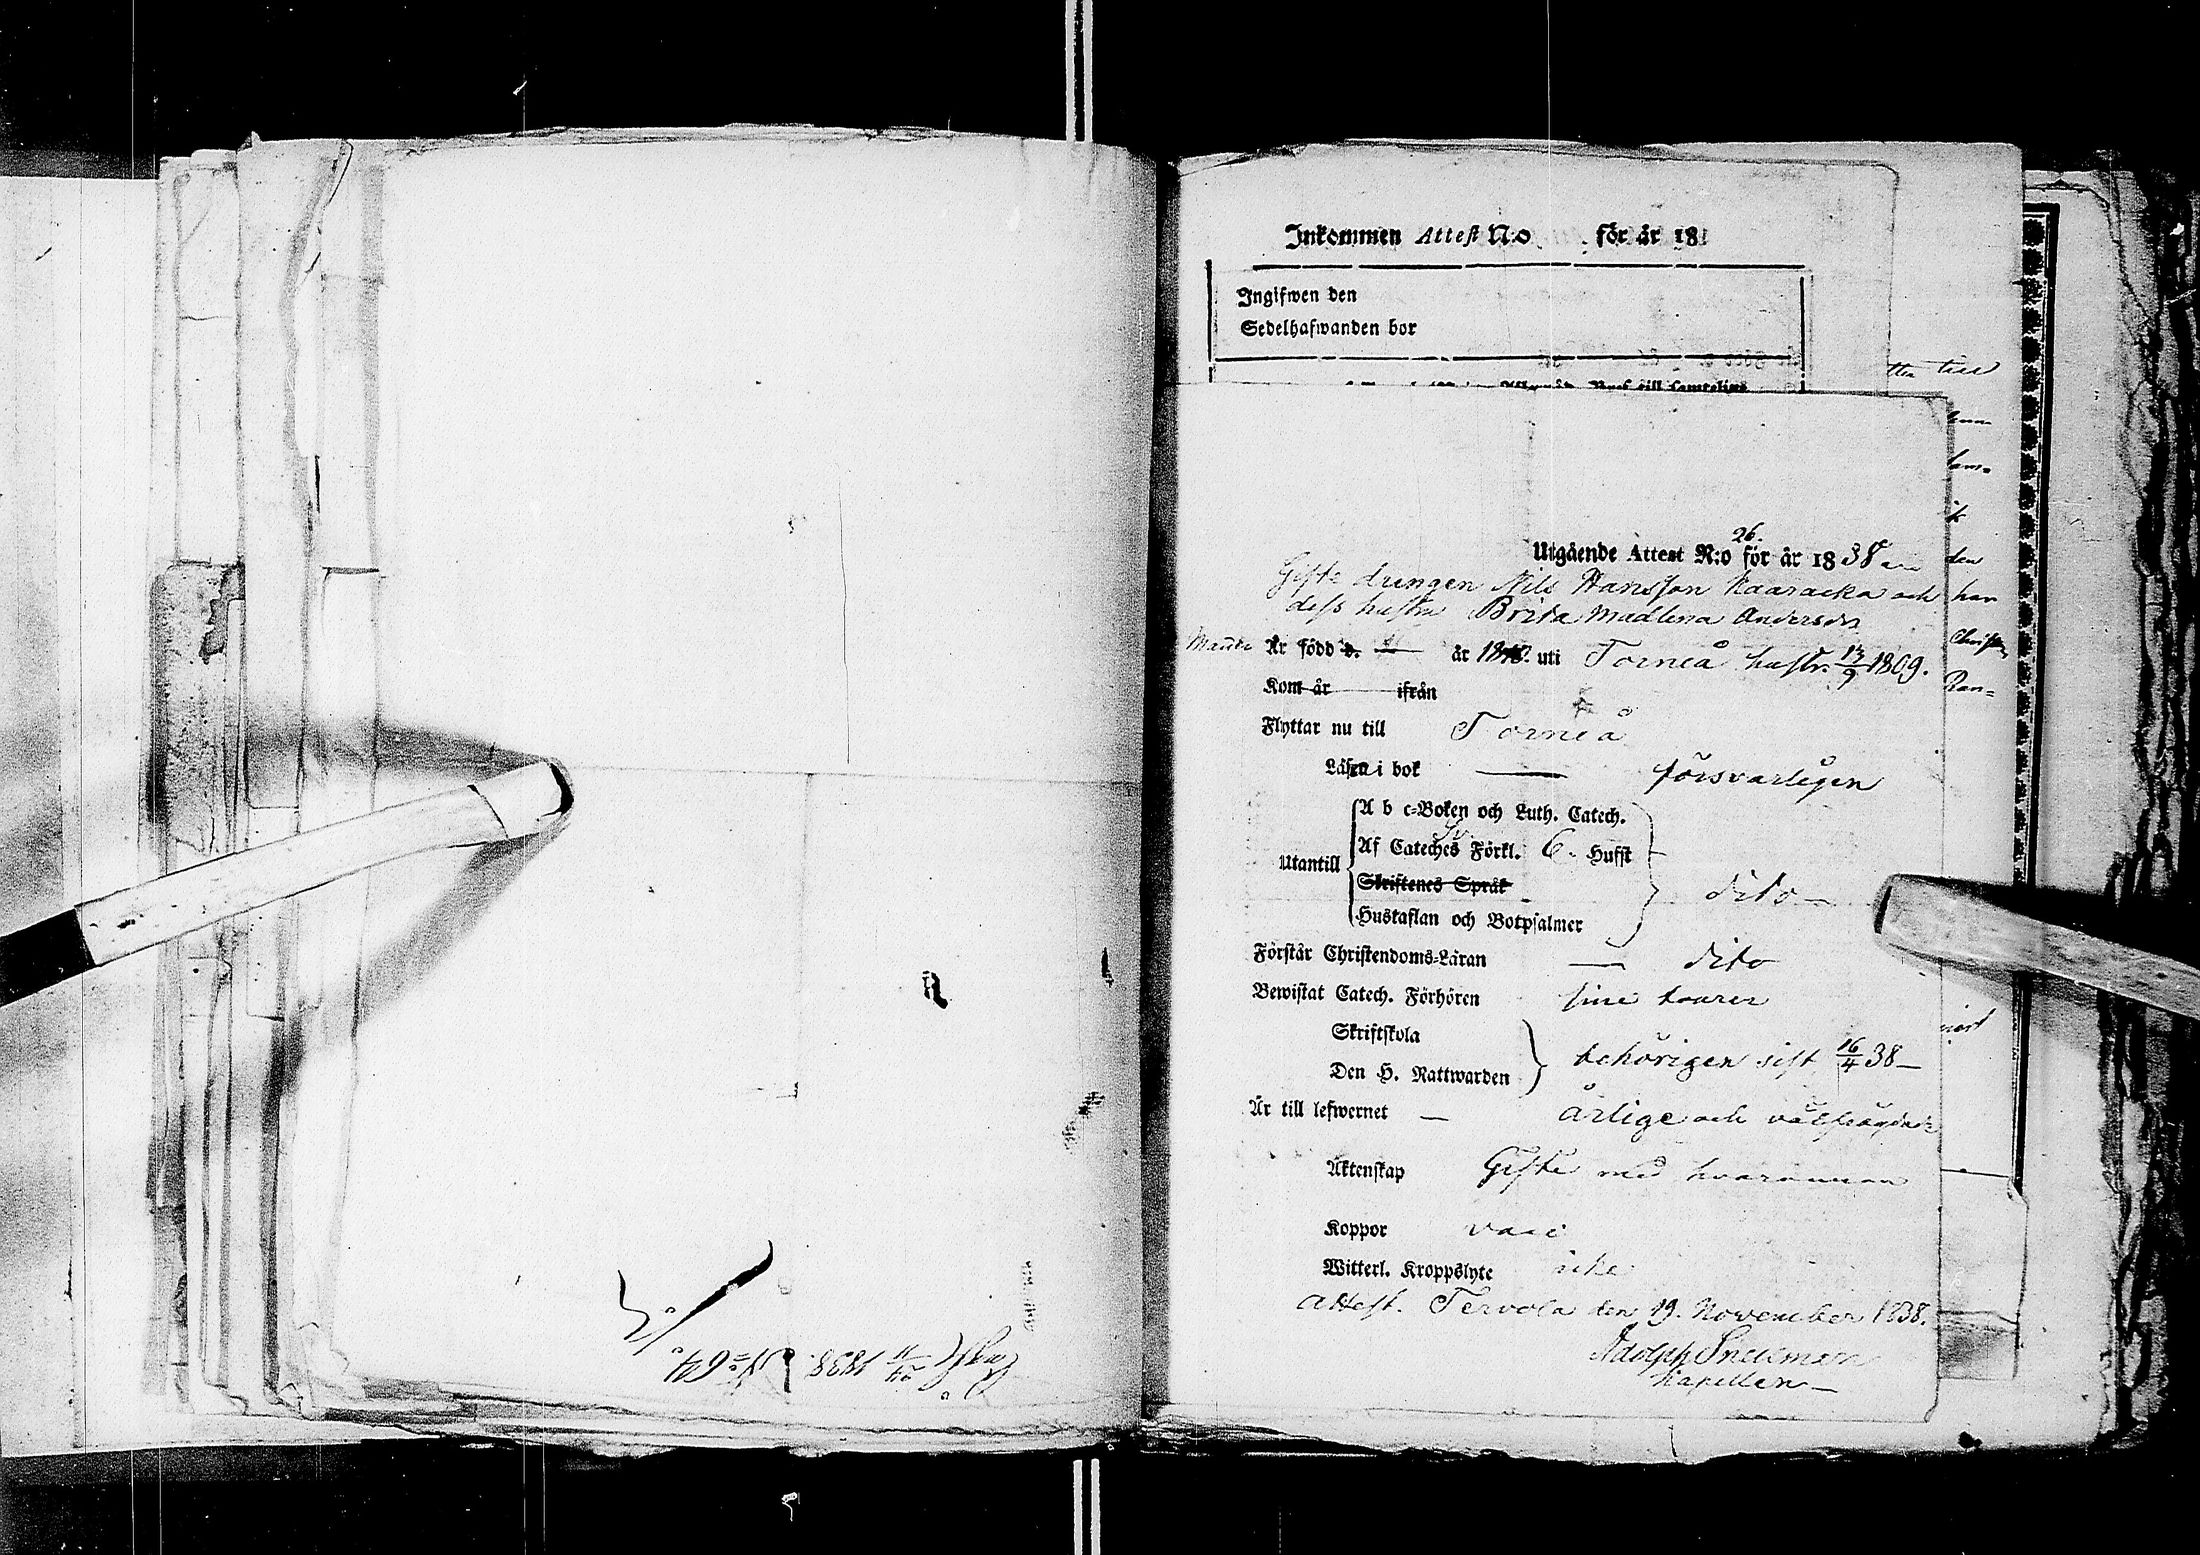 Inkommen Attest N:o för år 18
Ingifwen den
Sedelhafwanden bor
26.
Utgående Attest N:o för år 1838
Gifte drengen Nils Hansson Kaaracka och
dess hustru Brita Madlena Andersdr
Är född d. år 18 uti Torneå hustr. 13/9 1809.
Kom år ifrån
Flyttar nu till Torneå
Läsa i bok — försvarligen
A b c-Boken och Luth. Catech.
Sv.
Utantill Af Cateches Förkl. 6. Hufst
Skriftenes Språk
dito
Hustaflan och Botpsalmer
Förstår Christendoms-Läran — dito
Bewistat Catech. Förhören sine tourer
Skriftskola
behörigen sist 16/4 38 —
Den H. Nattwarden
Är till lefwernet — ärlige och välfrägdade
Äktenskap Gifte med hvarannan
Koppor
Witterl. Kroppslyte icke
Attest. Tervola den 19. November 1838.
Adolph Snellman
Kapellan —
tten till
den
han
Ran=
1838. N:o 64